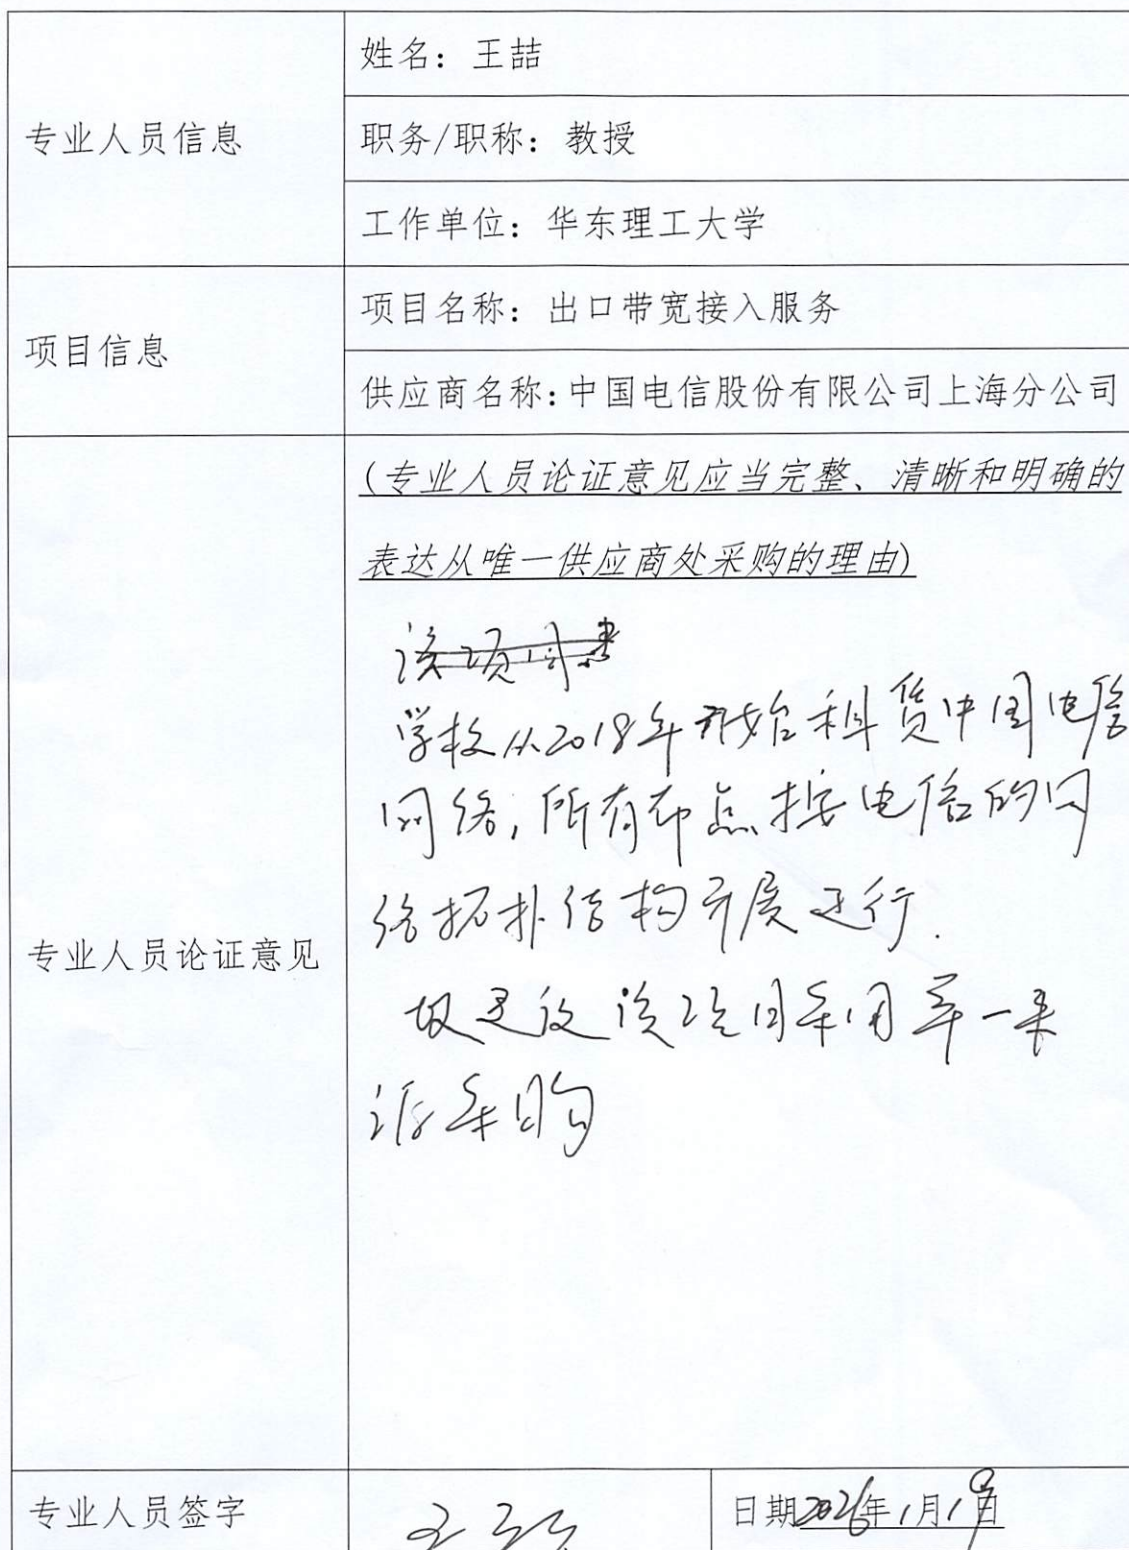 专业人员信息
姓名：王喆
职务/职称：教授
工作单位：华东理工大学
项目信息
项目名称：出口带宽接入服务
供应商名称：中国电信股份有限公司上海分公司
专业人员论证意见
(专业人员论证意见应当完整、清晰和明确的
表达从唯一供应商处采购的理由)
该项目
学校从2018年开始租赁中国电信
网络，所有布点按电信的网
络拓扑结构开展运行.
故建议该项目采用单一来
源采购
专业人员签字
日期2026年1月19日